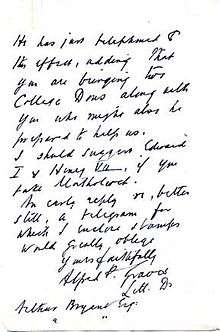 He has just telephoned to
this effect, adding that
you are bringing two
College Dons along with
you who might also be
prepared to help us.
I should suggest Edward
I & Henry VIII, if you
take
An early reply or, better
still, a telegram for
which I enclose stamps
would greatly oblige
Yours faithfully
Alfred P. Graves
Litt. D.
Arthur Bryant Esq.
" "